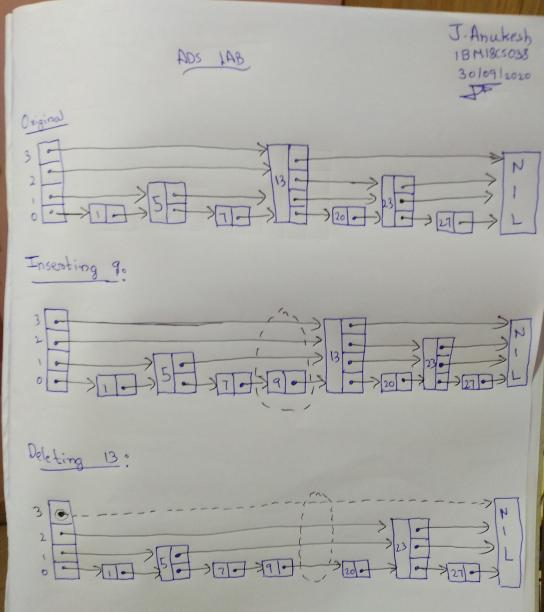 J. Anukesh
1BM18CS038
30/09/2020
ADS LAB
Original
3
2
1
0
1
5
7
13
20
23
27
NIL
Inserting 9:
3
2
1
0
1
5
7
9
13
20
23
27
NIL
Deleting 13:
3
2
1
0
1
5
7
9
20
23
27
NIL